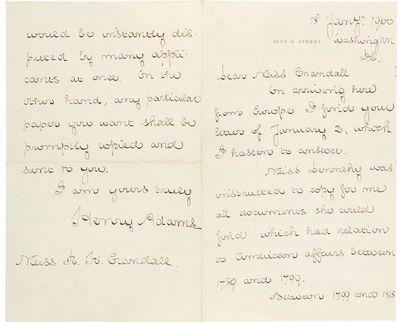 18 Jany. 1900
1603 H STREET.
Washington
D.C.
Dear Miss Crandall
On arriving here
from Europe I find your
letter of January 2, which
I hasten to answer.
Miss Dunnehy was
instructed to copy for me
all documents she could
find which had relation
to American affairs between
1789 and 1799.
Between 1799 and 1815
would be instantly dis-
puted by many appli-
cants at once. On the
other hand, any particular
paper you want shall be
promptly copied and
sent to you.
I am yours truly
Henry Adams
Miss R. K. Crandall.